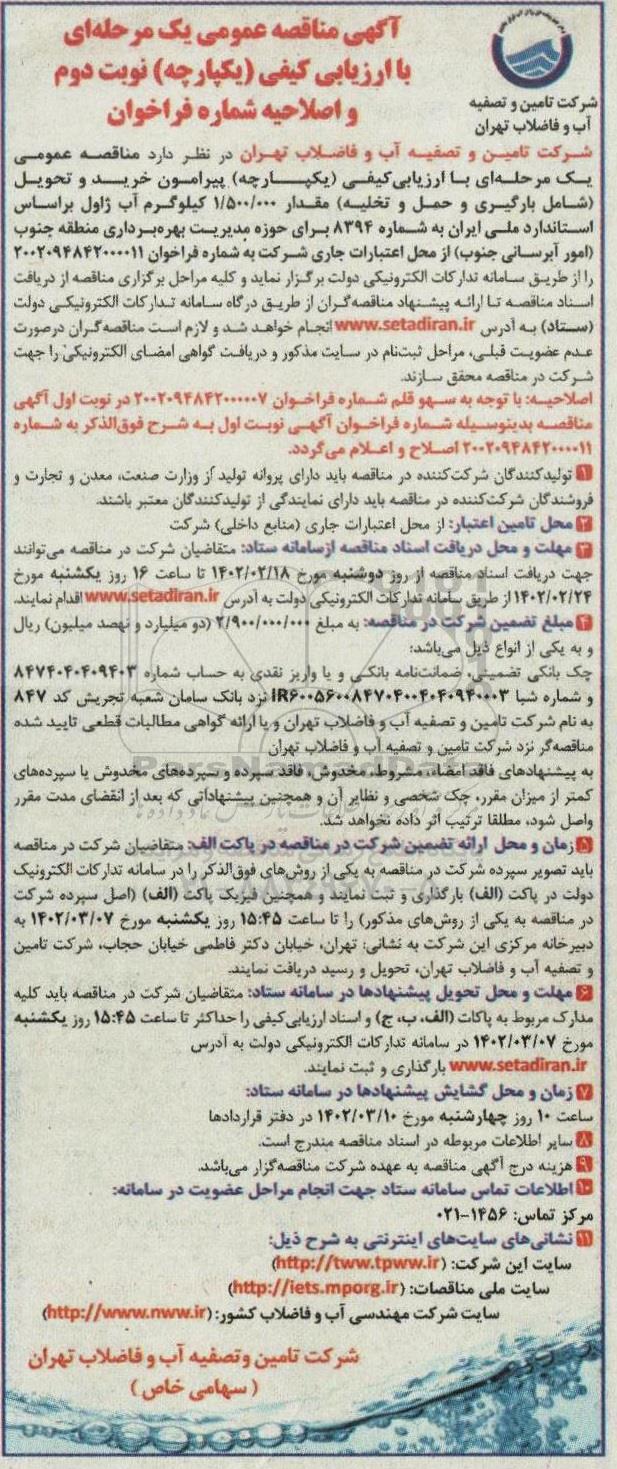 آگهی مناقصه عمومی یک مرحله‌ای
با ارزیابی کیفی (یکپارچه) نوبت دوم
و اصلاحیه شماره فراخوان
شرکت تامین و تصفیه
آب و فاضلاب تهران
شرکت تامین و تصفیه آب و فاضلاب تهران در نظر دارد مناقصه عمومی
یک مرحله‌ای با ارزیابی‌کیفی (یکپارچه) پیرامون خرید و تحویل
(شامل بارگیری و حمل و تخلیه) مقدار ۱/۵۰۰/۰۰۰ کیلوگرم آب ژاول براساس
استاندارد ملی ایران به شماره ۸۳۹۴ برای حوزه مدیریت بهره‌برداری منطقه جنوب
(امور آبرسانی جنوب) از محل اعتبارات جاری شرکت به شماره فراخوان ۲۰۰۲۰۹۴۸۴۲۰۰۰۰۱۱
را از طریق سامانه تدارکات الکترونیکی دولت برگزار نماید و کلیه مراحل برگزاری مناقصه از دریافت
اسناد مناقصه تا ارائه پیشنهاد مناقصه‌گران از طریق درگاه سامانه تدارکات الکترونیکی دولت
(ستاد) به آدرس www.setadiran.ir انجام خواهد شد و لازم است مناقصه‌گران درصورت
عدم عضویت قبلی، مراحل ثبت‌نام در سایت مذکور و دریافت گواهی امضای الکترونیکی را جهت
شرکت در مناقصه محقق سازند.
اصلاحیه: با توجه به سهو قلم شماره فراخوان ۲۰۰۲۰۹۴۸۴۲۰۰۰۰۰۷ در نوبت اول آگهی
مناقصه بدینوسیله شماره فراخوان آگهی نوبت اول به شرح فوق‌الذکر به شماره
۲۰۰۲۰۹۴۸۴۲۰۰۰۰۱۱ اصلاح و اعلام می‌گردد.
۱ تولیدکنندگان شرکت‌کننده در مناقصه باید دارای پروانه تولید از وزارت صنعت، معدن و تجارت و
فروشندگان شرکت‌کننده در مناقصه باید دارای نمایندگی از تولیدکنندگان معتبر باشند.
۲ محل تامین اعتبار: از محل اعتبارات جاری (منابع داخلی) شرکت
۳ مهلت و محل دریافت اسناد مناقصه ازسامانه ستاد: متقاضیان شرکت در مناقصه می‌توانند
جهت دریافت اسناد مناقصه از روز دوشنبه مورخ ۱۴۰۲/۰۲/۱۸ تا ساعت ۱۶ روز یکشنبه مورخ
۱۴۰۲/۰۲/۲۴ از طریق سامانه تدارکات الکترونیکی دولت به آدرس www.setadiran.ir اقدام نمایند.
۴ مبلغ تضمین شرکت در مناقصه: به مبلغ ۲/۹۰۰/۰۰۰/۰۰۰ (دو میلیارد و نهصد میلیون) ریال
و به یکی از انواع ذیل می‌باشد:
چک بانکی تضمینی، ضمانت‌نامه بانکی و یا واریز نقدی به حساب شماره ۸۴۷۴۰۴۰۴۰۹۴۰۳
و شماره شبا IR۶۰۰۵۶۰۰۸۴۷۰۴۰۰۴۰۴۰۹۴۰۰۳ نزد بانک سامان شعبه تجریش کد ۸۴۷
به نام شرکت تامین و تصفیه آب و فاضلاب تهران و یا ارائه گواهی مطالبات قطعی تایید شده
مناقصه‌گر نزد شرکت تامین و تصفیه آب و فاضلاب تهران
ParsNamadData
به پیشنهادهای فاقد امضاء، مشروط، مخدوش، فاقد سپرده و سپرده‌های مخدوش یا سپرده‌های
کمتر از میزان مقرر، چک شخصی و نظایر آن و همچنین پیشنهاداتی که بعد از انقضای مدت مقرر
واصل شود، مطلقا ترتیب اثر داده نخواهد شد.
۵ زمان و محل ارائه تضمین شرکت در مناقصه در پاکت الف: متقاضیان شرکت در مناقصه
باید تصویر سپرده شرکت در مناقصه به یکی از روش‌های فوق‌الذکر را در سامانه تدارکات الکترونیک
دولت در پاکت (الف) بارگذاری و ثبت نمایند و همچنین فیزیک پاکت (الف) (اصل سپرده شرکت
در مناقصه به یکی از روش‌های مذکور) را تا ساعت ۱۵:۴۵ روز یکشنبه مورخ ۱۴۰۲/۰۳/۰۷ به
دبیرخانه مرکزی این شرکت به نشانی: تهران، خیابان دکتر فاطمی خیابان حجاب، شرکت تامین
و تصفیه آب و فاضلاب تهران، تحویل و رسید دریافت نمایند.
۶ مهلت و محل تحویل پیشنهادها در سامانه ستاد: متقاضیان شرکت در مناقصه باید کلیه
مدارک مربوط به پاکات (الف، ب، ج) و اسناد ارزیابی‌کیفی را حداکثر تا ساعت ۱۵:۴۵ روز یکشنبه
مورخ ۱۴۰۲/۰۳/۰۷ در سامانه تدارکات الکترونیکی دولت به آدرس
www.setadiran.ir بارگذاری و ثبت نمایند.
۷ زمان و محل گشایش پیشنهادها در سامانه ستاد:
ساعت ۱۰ روز چهارشنبه مورخ ۱۴۰۲/۰۳/۱۰ در دفتر قراردادها
۸ سایر اطلاعات مربوطه در اسناد مناقصه مندرج است.
۹ هزینه درج آگهی مناقصه به عهده شرکت مناقصه‌گزار می‌باشد.
۱۰ اطلاعات تماس سامانه ستاد جهت انجام مراحل عضویت در سامانه:
مرکز تماس: ۱۴۵۶-۰۲۱
۱۱ نشانی‌های سایت‌های اینترنتی به شرح ذیل:
سایت این شرکت: (http://tww.tpww.ir)
سایت ملی مناقصات: (http://iets.mporg.ir)
سایت شرکت مهندسی آب و فاضلاب کشور: (http://www.nww.ir)
شرکت تامین وتصفیه آب و فاضلاب تهران
(سهامی خاص)